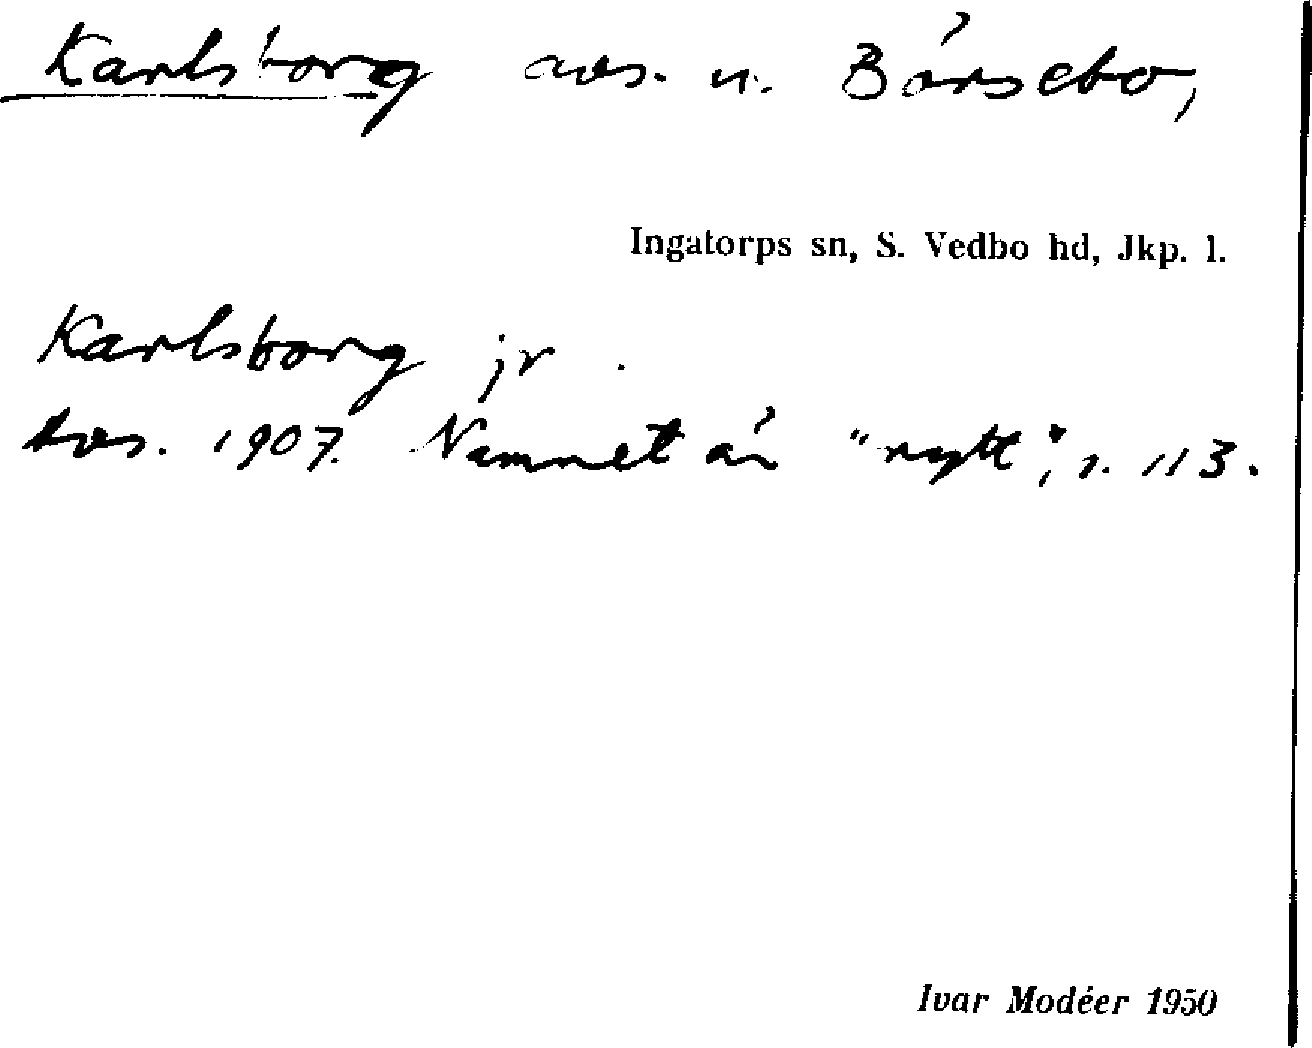 Karlsborg avs. u. Bärsebo,
Ingatorps sn, S. Vedbo hd, Jkp. l.
Karlsborg jr.
avs. 1907. Namnet är "nytt", s. 113.
Ivar Modéer 1950